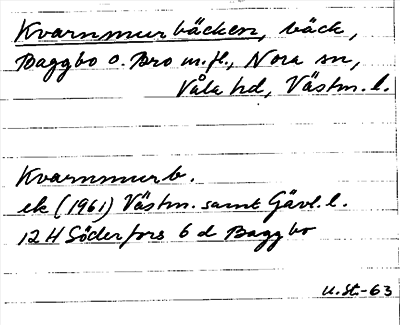 Kvarnmurbäcken, bäck,
Baggbo o. Bro m.fl., Nora sn,
Våla hd, Västm. l.
Kvarnmurb.
ek (1961) Västm. samt Gävl. l.
12 H Söderfors 6 d Baggbo
U.St.-63